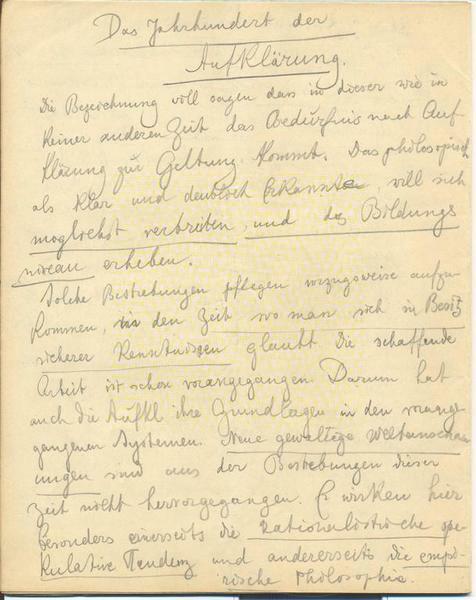 Das Jahrhundert der
Aufklärung.
Die Bezeichnung will sagen dass in dieser wie in
keiner anderen Zeit das Bedürfnis nach Auf-
klärung zur Geltung kommt. Das philosophisch
als klar und deutlich Erkannte, will sich
möglichst verbreiten, und das Bildungs
niveau erheben.
Solche Bestrebungen pflegen vorzugsweise aufzu
kommen, in den Zeit wo man sich in Besitz
sicherer Kenntnissen glaubt. Die schaffende
Arbeit ist schon vorangegangen. Darum hat
auch die Aufkl ihre Grundlagen in den vorange
gangenen Systemen. Neue gewaltige Weltanschau
ungen sind aus der Bestrebungen dieser
Zeit nicht hervorgegangen. Es wirken hier
besonders einerseits die rationalistische spe-
kulative Tendenz und andererseits die empi-
rische Philosophie.